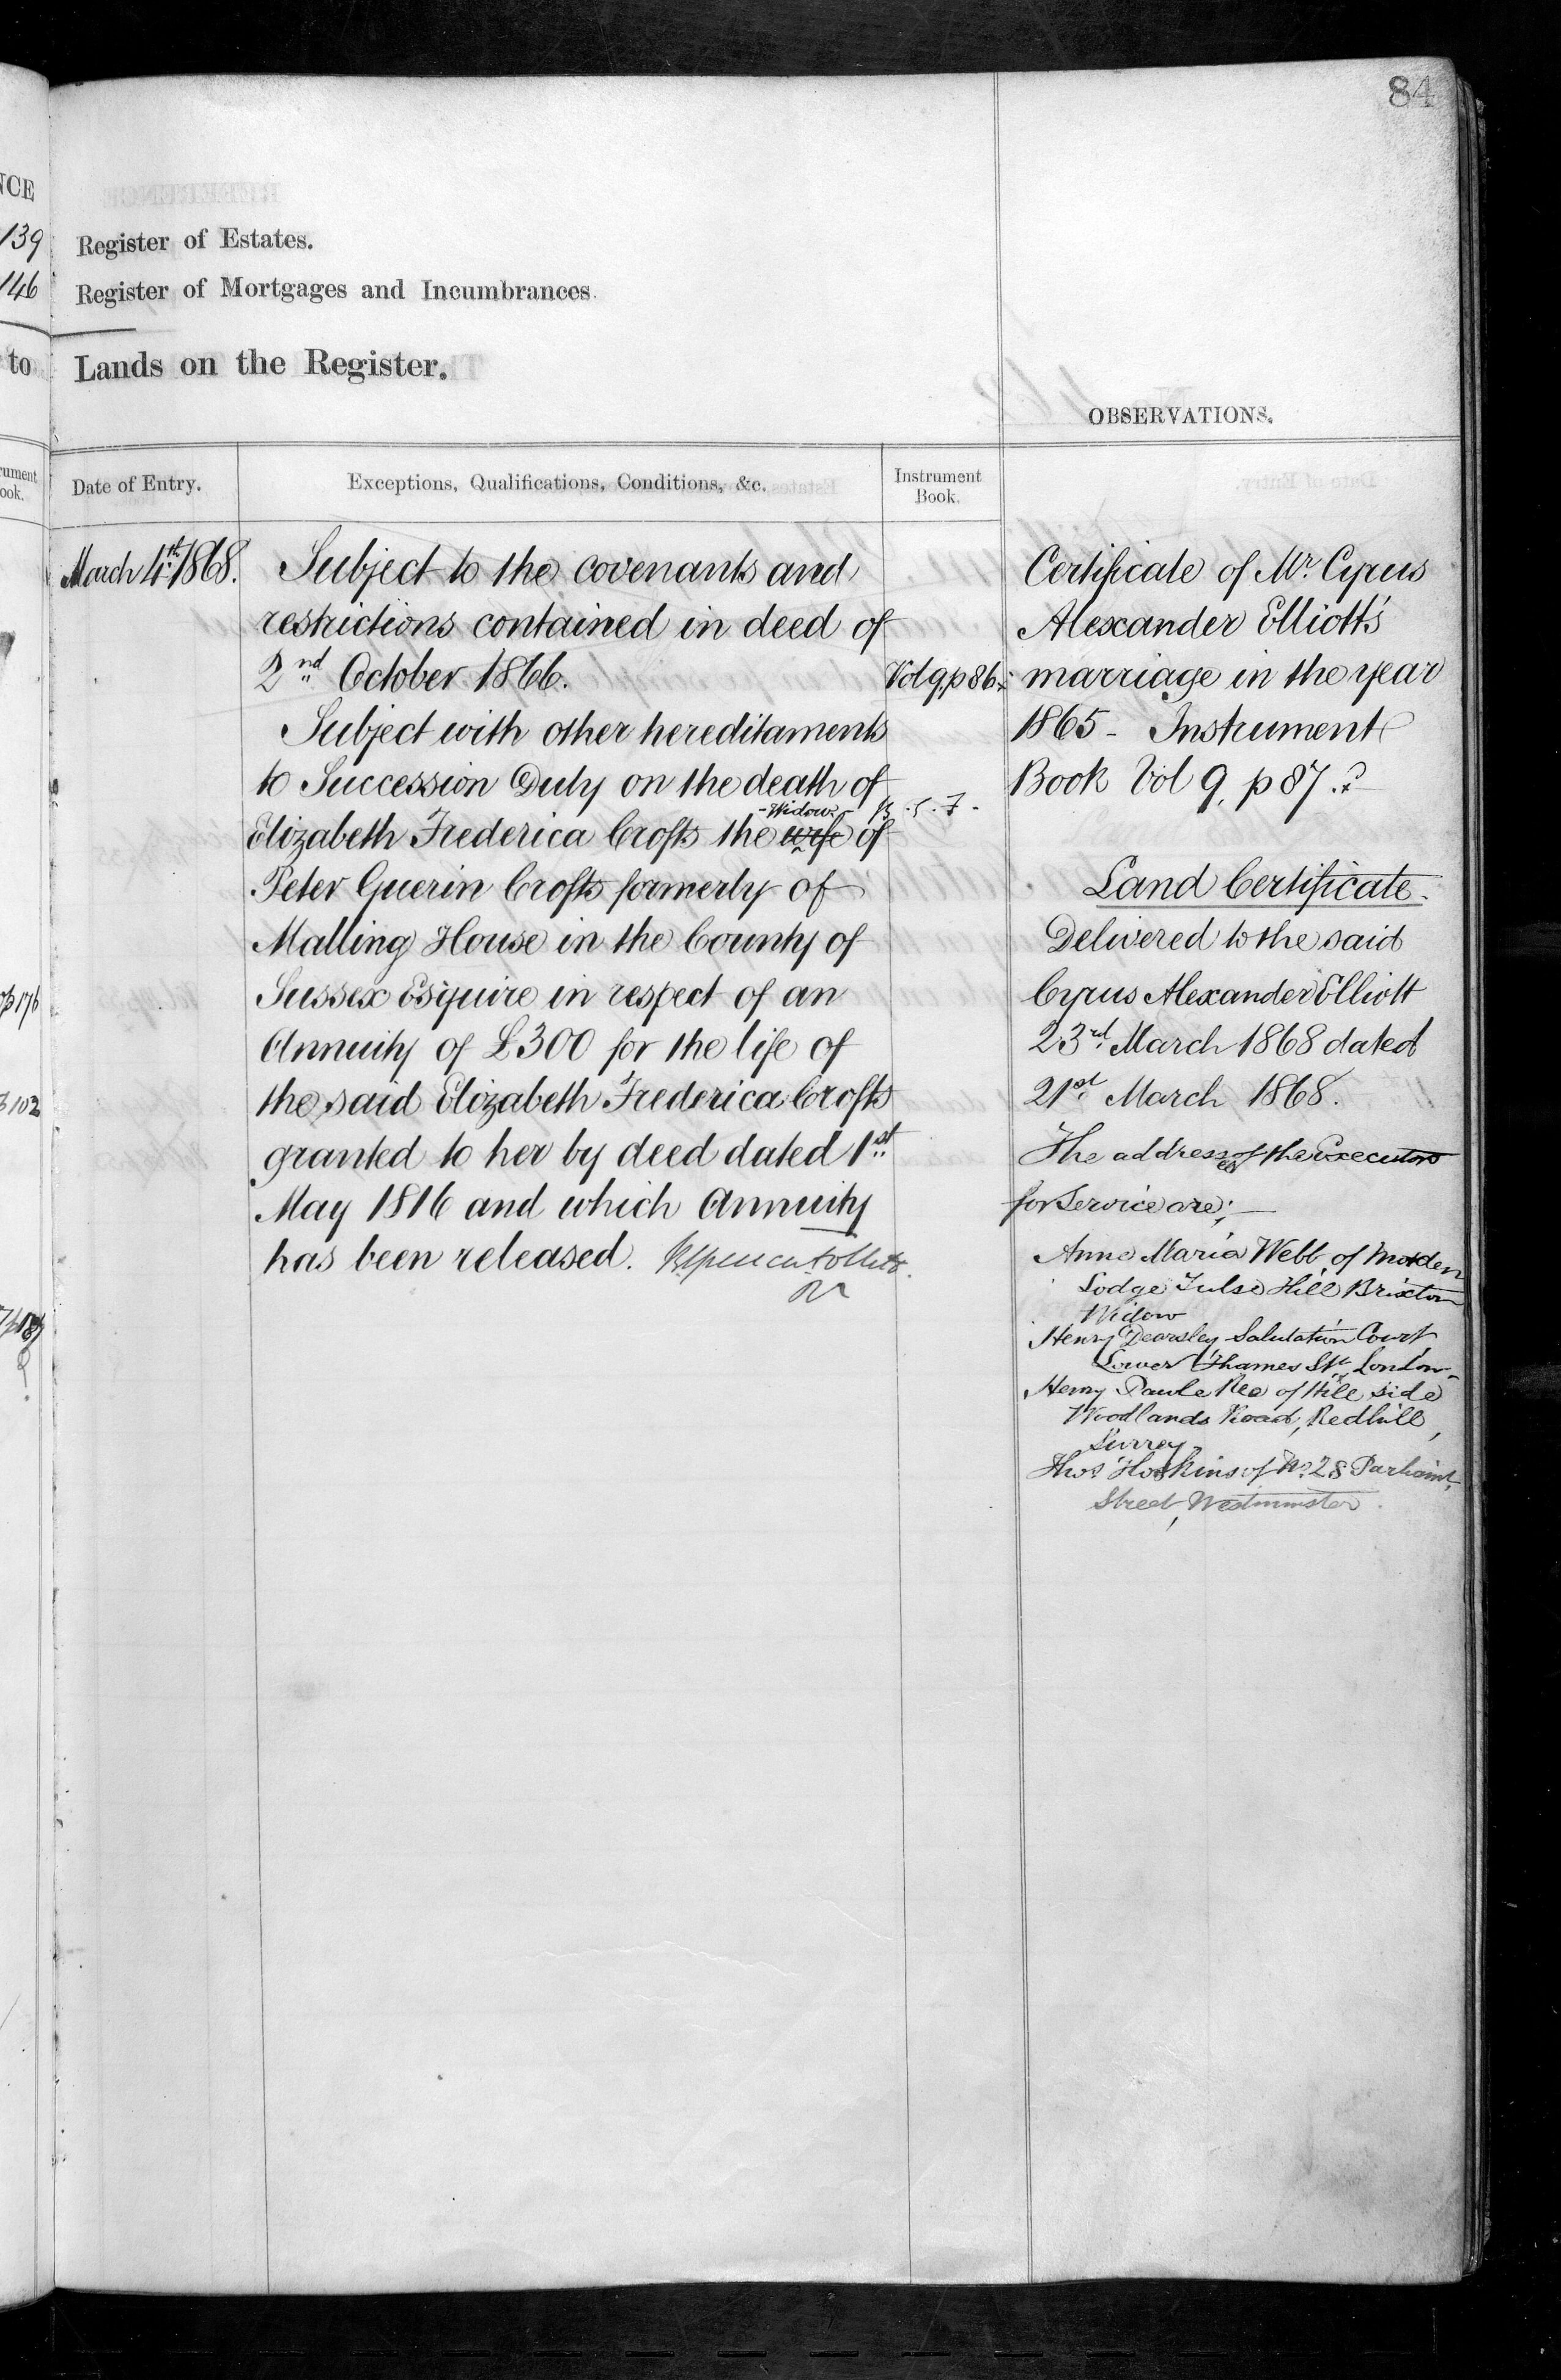 84
NCE
139
146
to
Register of Estates.
Register of Mortgages and Incumbrances.
Lands on the Register.
OBSERVATIONS.
Date of Entry.
Exceptions, Qualifications, Conditions, &c.
Instrument
Book.
March 4th 1868.
Subject to the covenants and
restrictions contained in deed of
2nd October 1866.
Vol 9. p 86
Subject with other hereditaments
to Succession Duty on the death of
-Widow-
Elizabeth Frederica Crofts the wife of
Peter Guerin Crofts formerly of
Malling House in the County of
Sussex Esquire in respect of an
Annuity of £300 for the life of
the said Elizabeth Frederica Crofts
granted to her by deed dated 1st
May 1816 and which Annuity
has been released.
Certificate of Mr. Cyrus
Alexander Elliott's
marriage in the year
1865 - Instrument
Book Vol 9, p 87.
Land Certificate.
Delivered to the said
Cyrus Alexander Elliott
23rd March 1868 dated
21st March 1868.
The addresses of the Executors
for Service are;—
Anne Maria Webb, of Morden
Lodge Tulse Hill Brixton
Widow
Henry Dearsley Salutation Court
Lower Thames St. London
Henry Paule Ree of Hill side
Woodlands Road, Redhill,
Surrey.
Thos Hoskins of No. 28 Parliamt.
Street, Westminster.